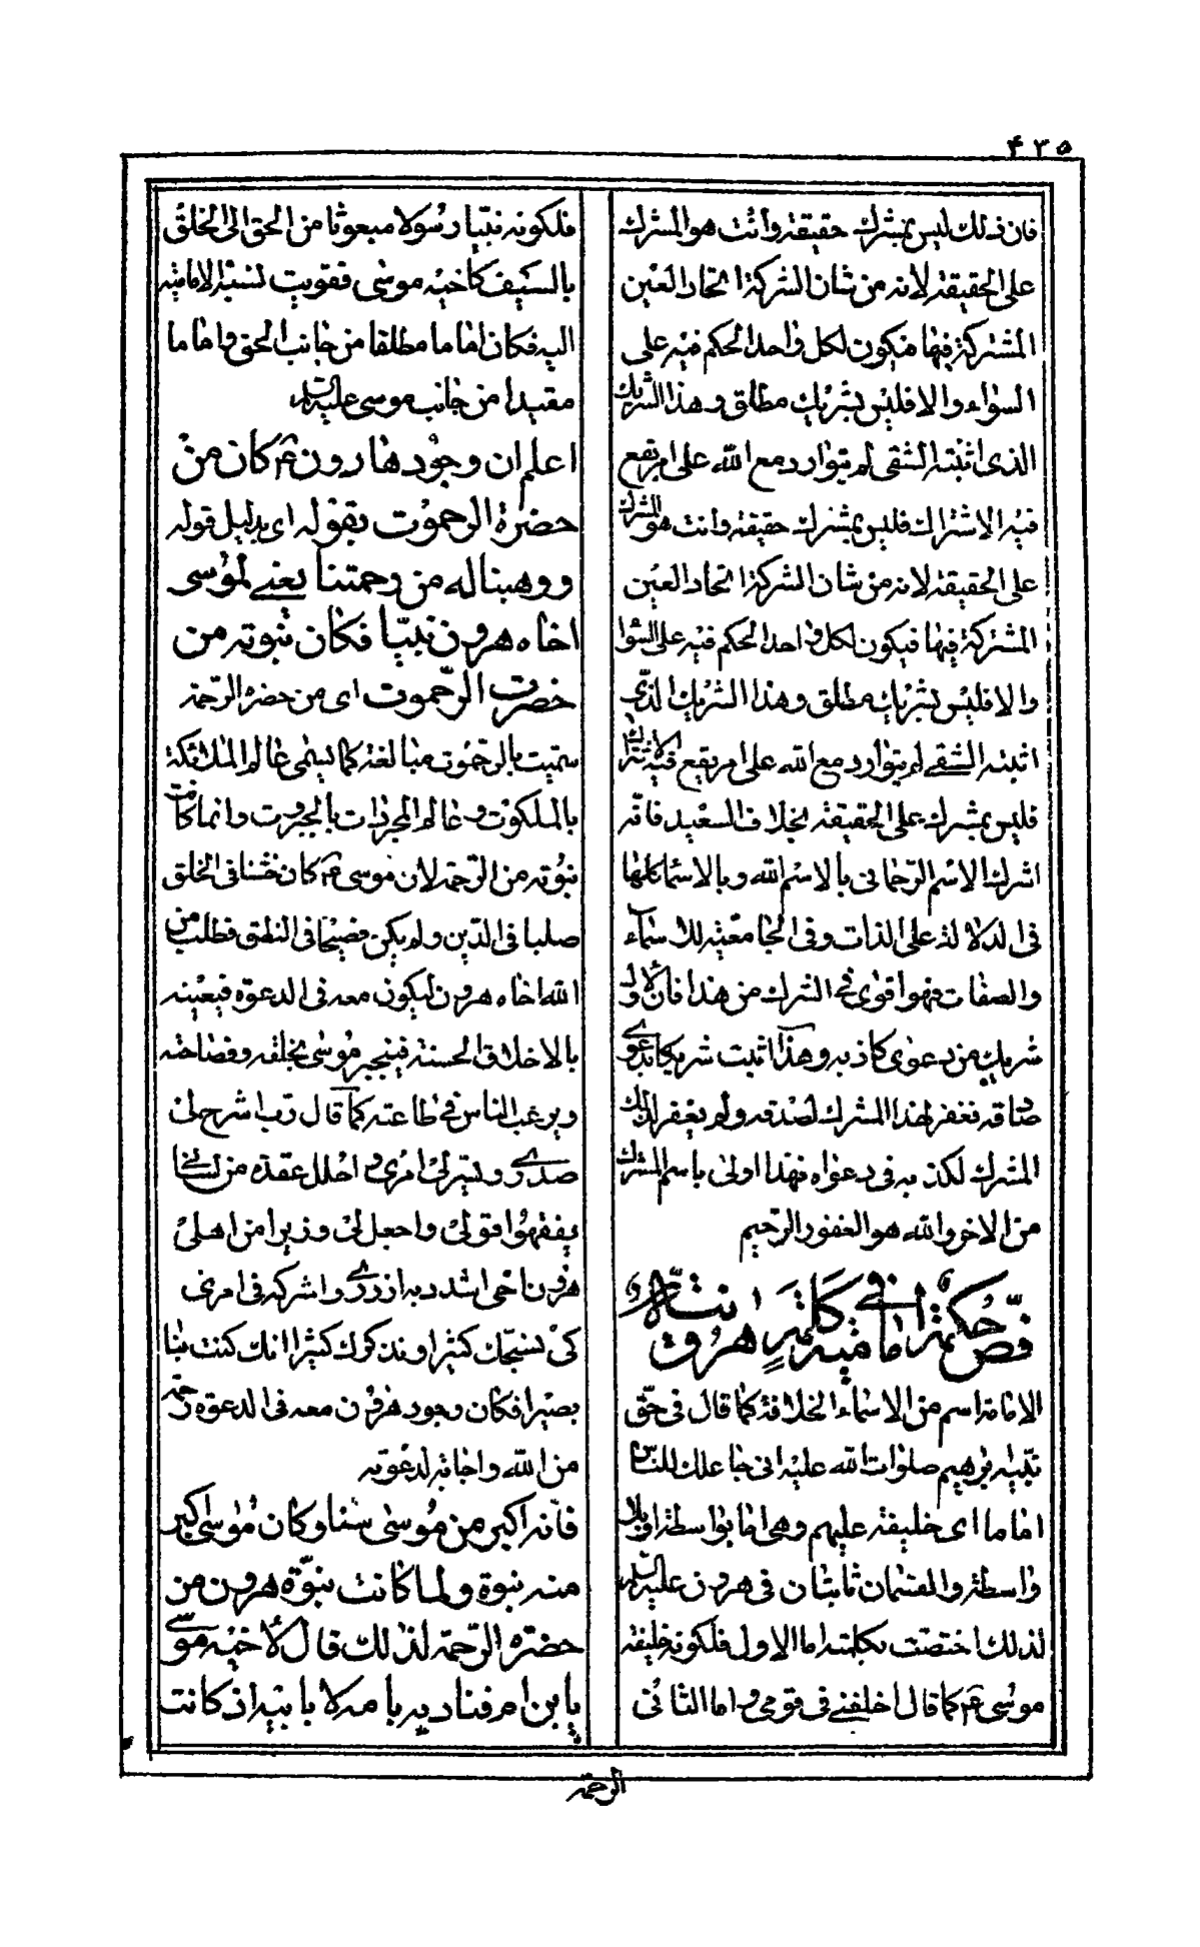 ۴۳۵
فان ذلك ليس بمشرك حقيقة وانت هو المشرك
على الحقيقة لانه من شان الشركة اتحاد العين
المشتركة فيها فيكون لكل واحد الحكم فيه على
السواء والا فليس بشريك مطلق وهذا الشريك
الذى اثبته الشقى لم يتوارد مع الله على امر يقع
فيه الاشتراك فليس بمشرك حقيقة وانت هو المشرك
على الحقيقة لانه من شان الشركة اتحاد العين
المشتركة فيها فيكون لكل واحد الحكم فيه على السوا
والا فليس بشريك مطلق وهذا الشريك الذى
اثبته الشقى لم يتوارد مع الله على امر يقع فيه الاشتراك
فليس بمشرك على الحقيقة بخلاف السعيد فانه
اشرك الاسم الرحمانى بالاسم الله وبالاسما كلها
فى الدلالة على الذات وفى الجامعية للاسماء
والصفات فهو اقوى فى الشرك من هذا فان الاول
شريك من دعوى كاذبه وهذا اثبت شريكا بدعوى
صادقه فغفر لهذا المشرك لصدقه ولم يغفر لذلك
المشرك لكذبه فى دعواه فهذا اولى باسم المشرك
من الاخر والله هو الغفور الرحيم
فص حكمة امامية فى كلمة هرونية
الامامة اسم من الاسماء الخلافة كما قال فى حق
نبيه ابرهيم صلوات الله عليه انى جاعلك للناس
اماما اى خليفة عليهم وهى اما بواسطة او بلا
واسطة والقسمان ثابتان فى هرون عليه السلم
لذلك اختصت بكلمته اما الاول فلكونه خليفة
موسى ع م كما قال اخلفنى فى قومى واما الثانى
فلكونه نبيا رسولا مبعوثا من الحق الى الخلق
بالسيف كاخيه موسى فقويت نسبة الامامية
اليه فكان اماما مطلقا من جانب الحق واماما
مقيدا من جانب موسى عليه السلم
اعلم ان وجود هارون ع م كان من
حضرة الرحموت بقوله اى بدليل قوله
ووهبنا له من رحمتنا يعنى لموسى
اخاه هرون نبيا فكان نبوته من
حضرت الرحموت اى من حضرة الرحمة
سميت بالرحموت مبالغة كما يسمى عالم الملائكة
بالملكوت وعالم المجردات بالجبروت وانما كانت
نبوته من الرحمة لان موسى ع م كان خشنا فى الخلق
صلبا فى الدين ولم يكن فصيحا فى النطق فطلب من
الله اخاه هرون ليكون معه فى الدعوة فيعينه
بالاخلاق الحسنة فينجبر موسى بخلقه وفصاحته
ويرغب الناس فى طاعته كما قال رب اشرح لى
صدرى ويسر لى امرى واحلل عقدة من لسانى
يفقهوا قولى واجعل لى وزيرا من اهلى
هرون اخى اشدد به ازرى واشركه فى امرى
كى نسبحك كثيرا ونذكرك كثيرا انك كنت بنا
بصيرا فكان وجود هرون معه فى الدعوة رحمة
من الله واجابة لدعوته
فانه اكبر من موسى سنا وكان موسى اكبر
منه نبوة ولما كانت نبوة هرون من
حضرة الرحمة لذلك قال لاخيه موسى
يا بن ام فناداه بامه لا بابيه اذ كانت
الرحمة